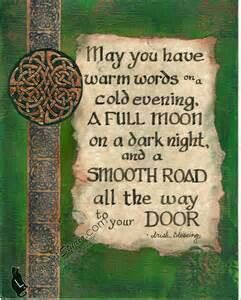 May you have
warm words on a
cold evening,
A FULL MOON
on a dark night,
and a
SMOOTH ROAD
all the way
to your DOOR
- Irish Blessing